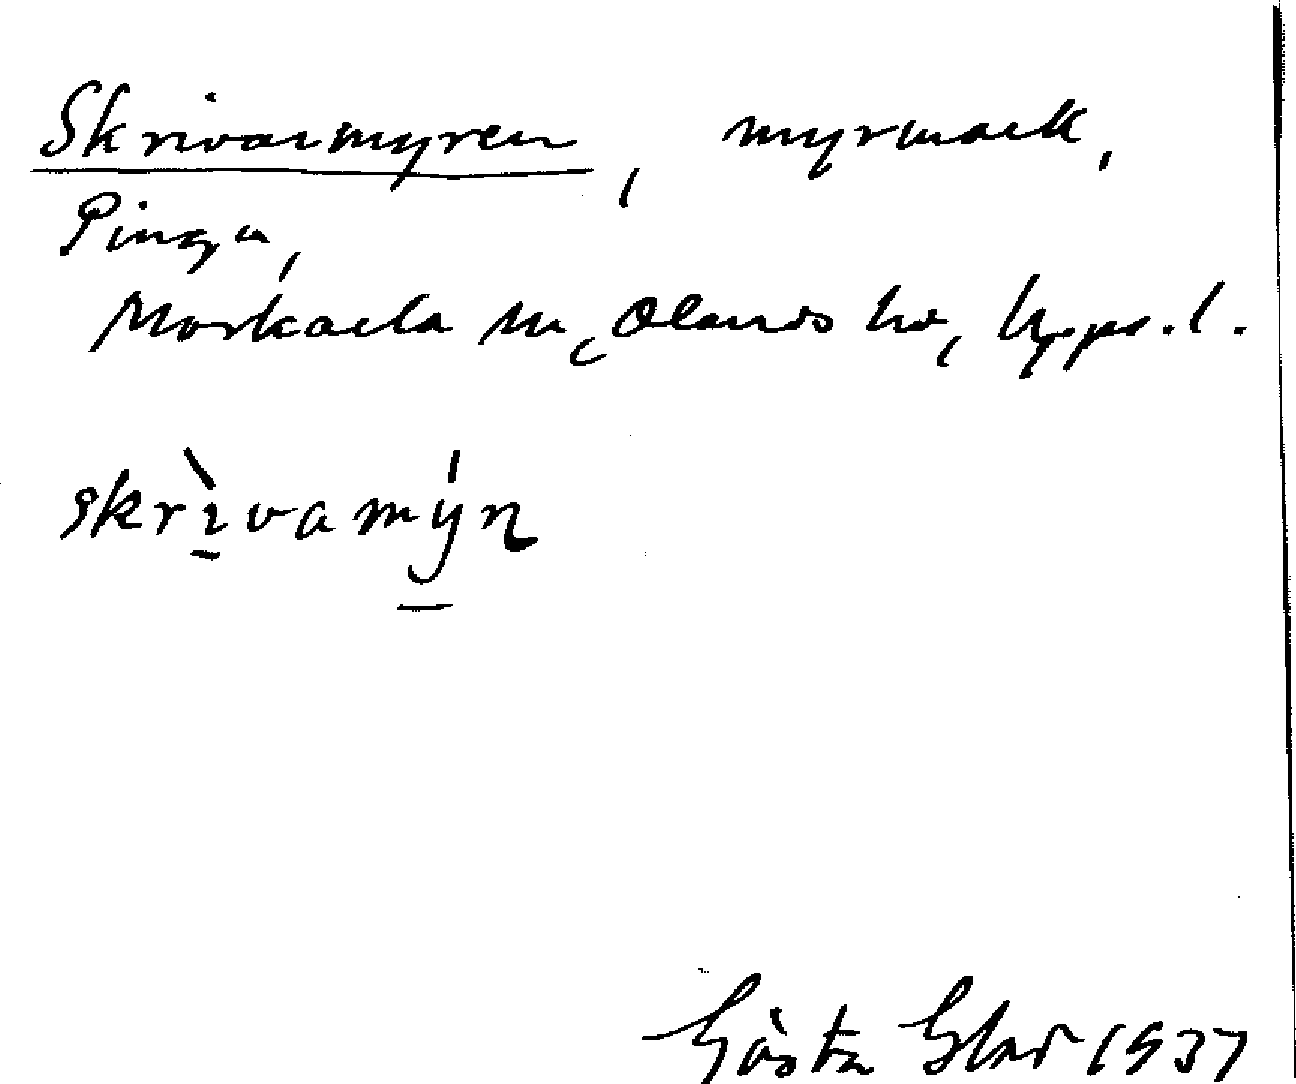 Skrivarmyren, myrmark,
Pinga,
Morkarla sn, Olands hd, Upps. l.
skrìvamýn
Gösta 1937